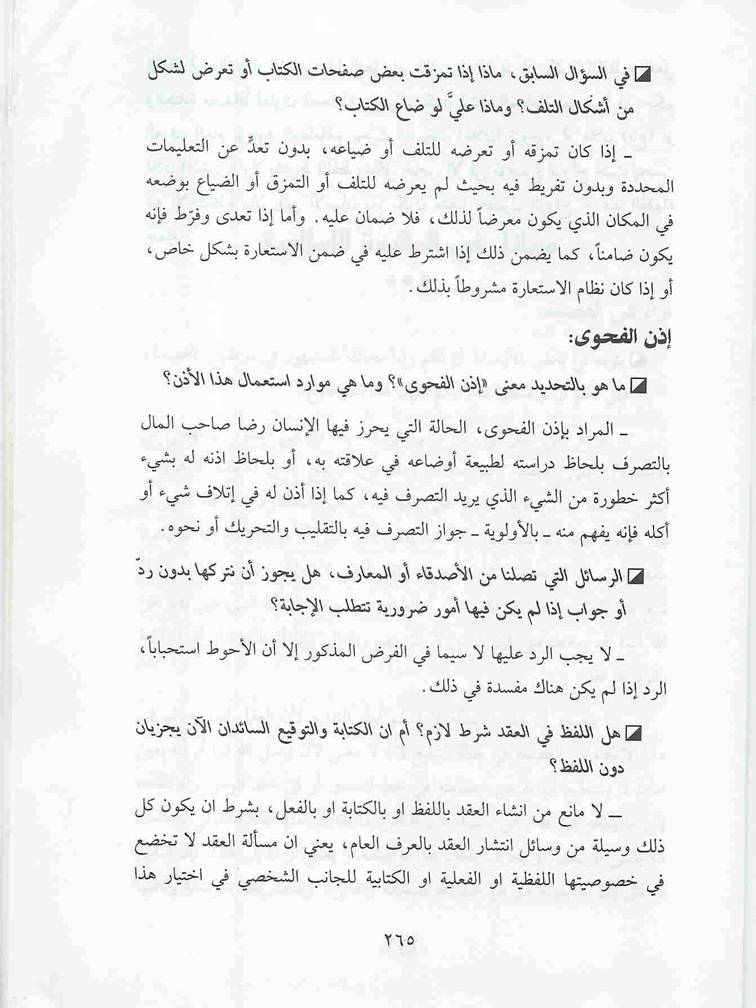 في السؤال السابق، ماذا إذا تمزقت بعض صفحات الكتاب أو تعرض لشكل
من أشكال التلف؟ وماذا عليَّ لو ضاع الكتاب؟
ـ إذا كان تمزقه أو تعرضه للتلف أو ضياعه، بدون تعدٍّ عن التعليمات
المحددة وبدون تفريط فيه بحيث لم يعرضه للتلف أو التمزق أو الضياع بوضعه
في المكان الذي يكون معرضاً لذلك، فلا ضمان عليه. وأما إذا تعدى وفرّط فإنه
يكون ضامناً، كما يضمن ذلك إذا اشترط عليه في ضمن الاستعارة بشكل خاص،
أو إذا كان نظام الاستعارة مشروطاً بذلك.
إذن الفحوى:
ما هو بالتحديد معنى «إذن الفحوى»؟ وما هي موارد استعمال هذا الأذن؟
ـ المراد بإذن الفحوى، الحالة التي يحرز فيها الإنسان رضا صاحب المال
بالتصرف بلحاظ دراسته لطبيعة أوضاعه في علاقته به، أو بلحاظ اذنه له بشيء
أكثر خطورة من الشيء الذي يريد التصرف فيه، كما إذا أذن له في إتلاف شيء أو
أكله فإنه يفهم منه ـ بالأولوية ـ جواز التصرف فيه بالتقليب والتحريك أو نحوه.
الرسائل التي تصلنا من الأصدقاء أو المعارف، هل يجوز أن نتركها بدون ردّ
أو جواب إذا لم يكن فيها أمور ضرورية تتطلب الإجابة؟
ـ لا يجب الرد عليها لا سيما في الفرض المذكور إلا أن الأحوط استحباباً،
الرد إذا لم يكن هناك مفسدة في ذلك.
هل اللفظ في العقد شرط لازم؟ أم ان الكتابة والتوقيع السائدان الآن يجزيان
دون اللفظ؟
ـ لا مانع من انشاء العقد باللفظ او بالكتابة او بالفعل، بشرط ان يكون كل
ذلك وسيلة من وسائل انتشار العقد بالعرف العام، يعني ان مسألة العقد لا تخضع
في خصوصيتها اللفظية او الفعلية او الكتابية للجانب الشخصي في اختيار هذا
٢٦٥